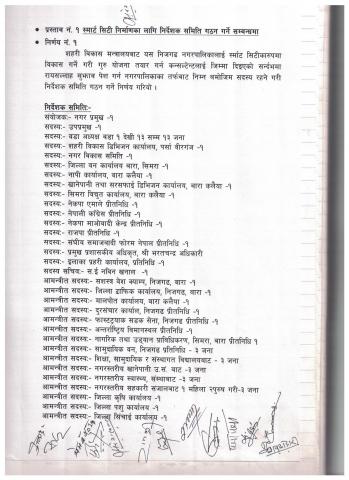 ● प्रस्ताव नं. १ स्मार्ट सिटी निर्माणका लागि निर्देशक समिति गठन गर्ने सम्बन्धमा
● निर्णय नं. १
शहरी विकास मन्त्रालयबाट यस निजगढ नगरपालिकालाई स्मार्ट सिटीकारुपमा
विकास गर्ने गरी गुरु योजना तयार गर्न कन्सल्टेन्टलाई जिम्मा दिइएको सन्दर्भमा
रायसल्लाह सुझाव पेश गर्न नगरपालिकाका तर्फबाट निम्न बमोजिम सदस्य रहने गरी
निर्देशक समिति गठन गर्ने निर्णय गरियो ।
निर्देशक समिति:-
संयोजक:- नगर प्रमुख -१
सदस्य:- उपप्रमुख -१
सदस्य:- वडा अध्यक्ष वडा १ देखी १३ सम्म १३ जना
सदस्य:- शहरी विकास डिभिजन कार्यालय, पर्सा वीरगंज -१
सदस्य:- नगर विकास समिति -१
सदस्य:- जिल्ला वन कार्यालय बारा, सिमरा -१
सदस्य:- नापी कार्यालय, बारा कलैया -१
सदस्य:- खानेपानी तथा सरसफाई डिभिजन कार्यालय, बारा कलैया -१
सदस्य:- सिमरा विद्युत कार्यालय, बारा कलैया -१
सदस्य:- नेकपा एमाले प्रतिनिधि -१
सदस्य:- नेपाली काँग्रेस प्रतिनिधी -१
सदस्य:- नेकपा माओवादी केन्द्र प्रीतनिधी -१
सदस्य:- राजपा प्रीतनिधी -१
सदस्य:- संघीय समाजवादी फोरम नेपाल प्रीतनिधी -१
सदस्य:- प्रमुख प्रशासकीय अधिकृत, श्री भरतचन्द्र अधिकारी
सदस्य:- इलाका प्रहरी कार्यालय, प्रतिनिधि -१
सदस्य सचिव:- स.ई नबिन खनाल -१
आमन्त्रीत सदस्य:- सशस्त्र वेश क्याम्प, निजगढ, बारा -१
आमन्त्रीत सदस्य:- जिल्ला ट्राफिक कार्यालय, निजगढ, बारा -१
आमन्त्रीत सदस्य:- मालपोत कार्यालय, बारा कलैया -१
आमन्त्रीत सदस्य:- दुरसंचार कार्यालय, निजगढ प्रीतनिधी -१
आमन्त्रीत सदस्य:- फास्टट्र्याक सडक सेना, निजगढ प्रीतनिधी -१
आमन्त्रीत सदस्य:- अन्तर्राष्ट्रिय विमानस्थल प्रीतनिधी -१
आमन्त्रीत सदस्य:- नागरिक तथा उड्यान प्राधिधिकरण, सिमरा, बारा प्रीतनिधी १
आमन्त्रीत सदस्य:- सामुदायिक वन, निजगढ प्रतिनिधि - ३ जना
आमन्त्रीत सदस्य:- शिक्षा, सामुदायिक र संस्थागत विद्यालयबाट -३ जना
आमन्त्रीत सदस्य:- नगरस्तरीय खानेपानी उ.स. बाट -३ जना
आमन्त्रीत सदस्य:- नगरस्तरीय स्वास्थ्य, संस्थाबाट -३ जना
आमन्त्रीत सदस्य:- नगरस्तरीय सहकारी संजालबाट १ महिला २पुरुष गरी-३ जना
आमन्त्रीत सदस्य:- जिल्ला कृषि कार्यालय -१
आमन्त्रीत सदस्य:- जिल्ला पशु कार्यालय -१
आमन्त्रीत सदस्य:- जिल्ला सिंचाई कार्यालय -१